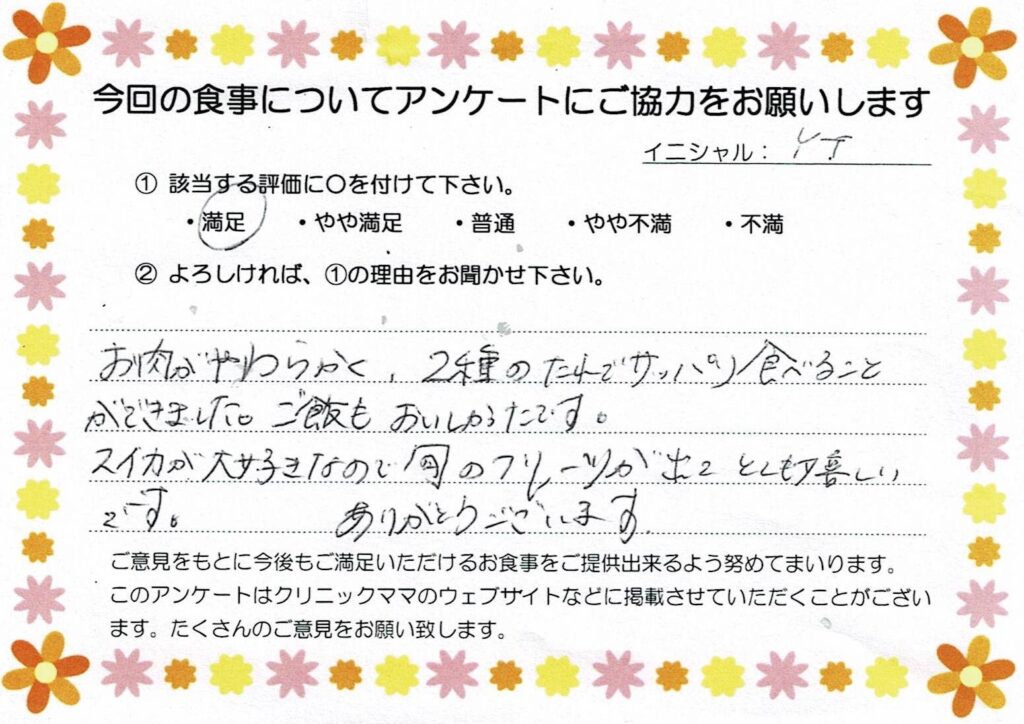 今回の食事についてアンケートにご協力をお願いします
イニシャル： YT
① 該当する評価に〇を付けて下さい。
・満足 ・やや満足 ・普通 ・やや不満 ・不満
② よろしければ、①の理由をお聞かせ下さい。
お肉がやわらかく、2種のたれでサッパリ食べること
ができました。ご飯もおいしかったです。
スイカが大好きなので旬のフルーツが出て とても嬉しい
です。 ありがとうございます
ご意見をもとに今後もご満足いただけるお食事をご提供出来るよう努めてまいります。
このアンケートはクリニックママのウェブサイトなどに掲載させていただくことがござい
ます。たくさんのご意見をお願い致します。